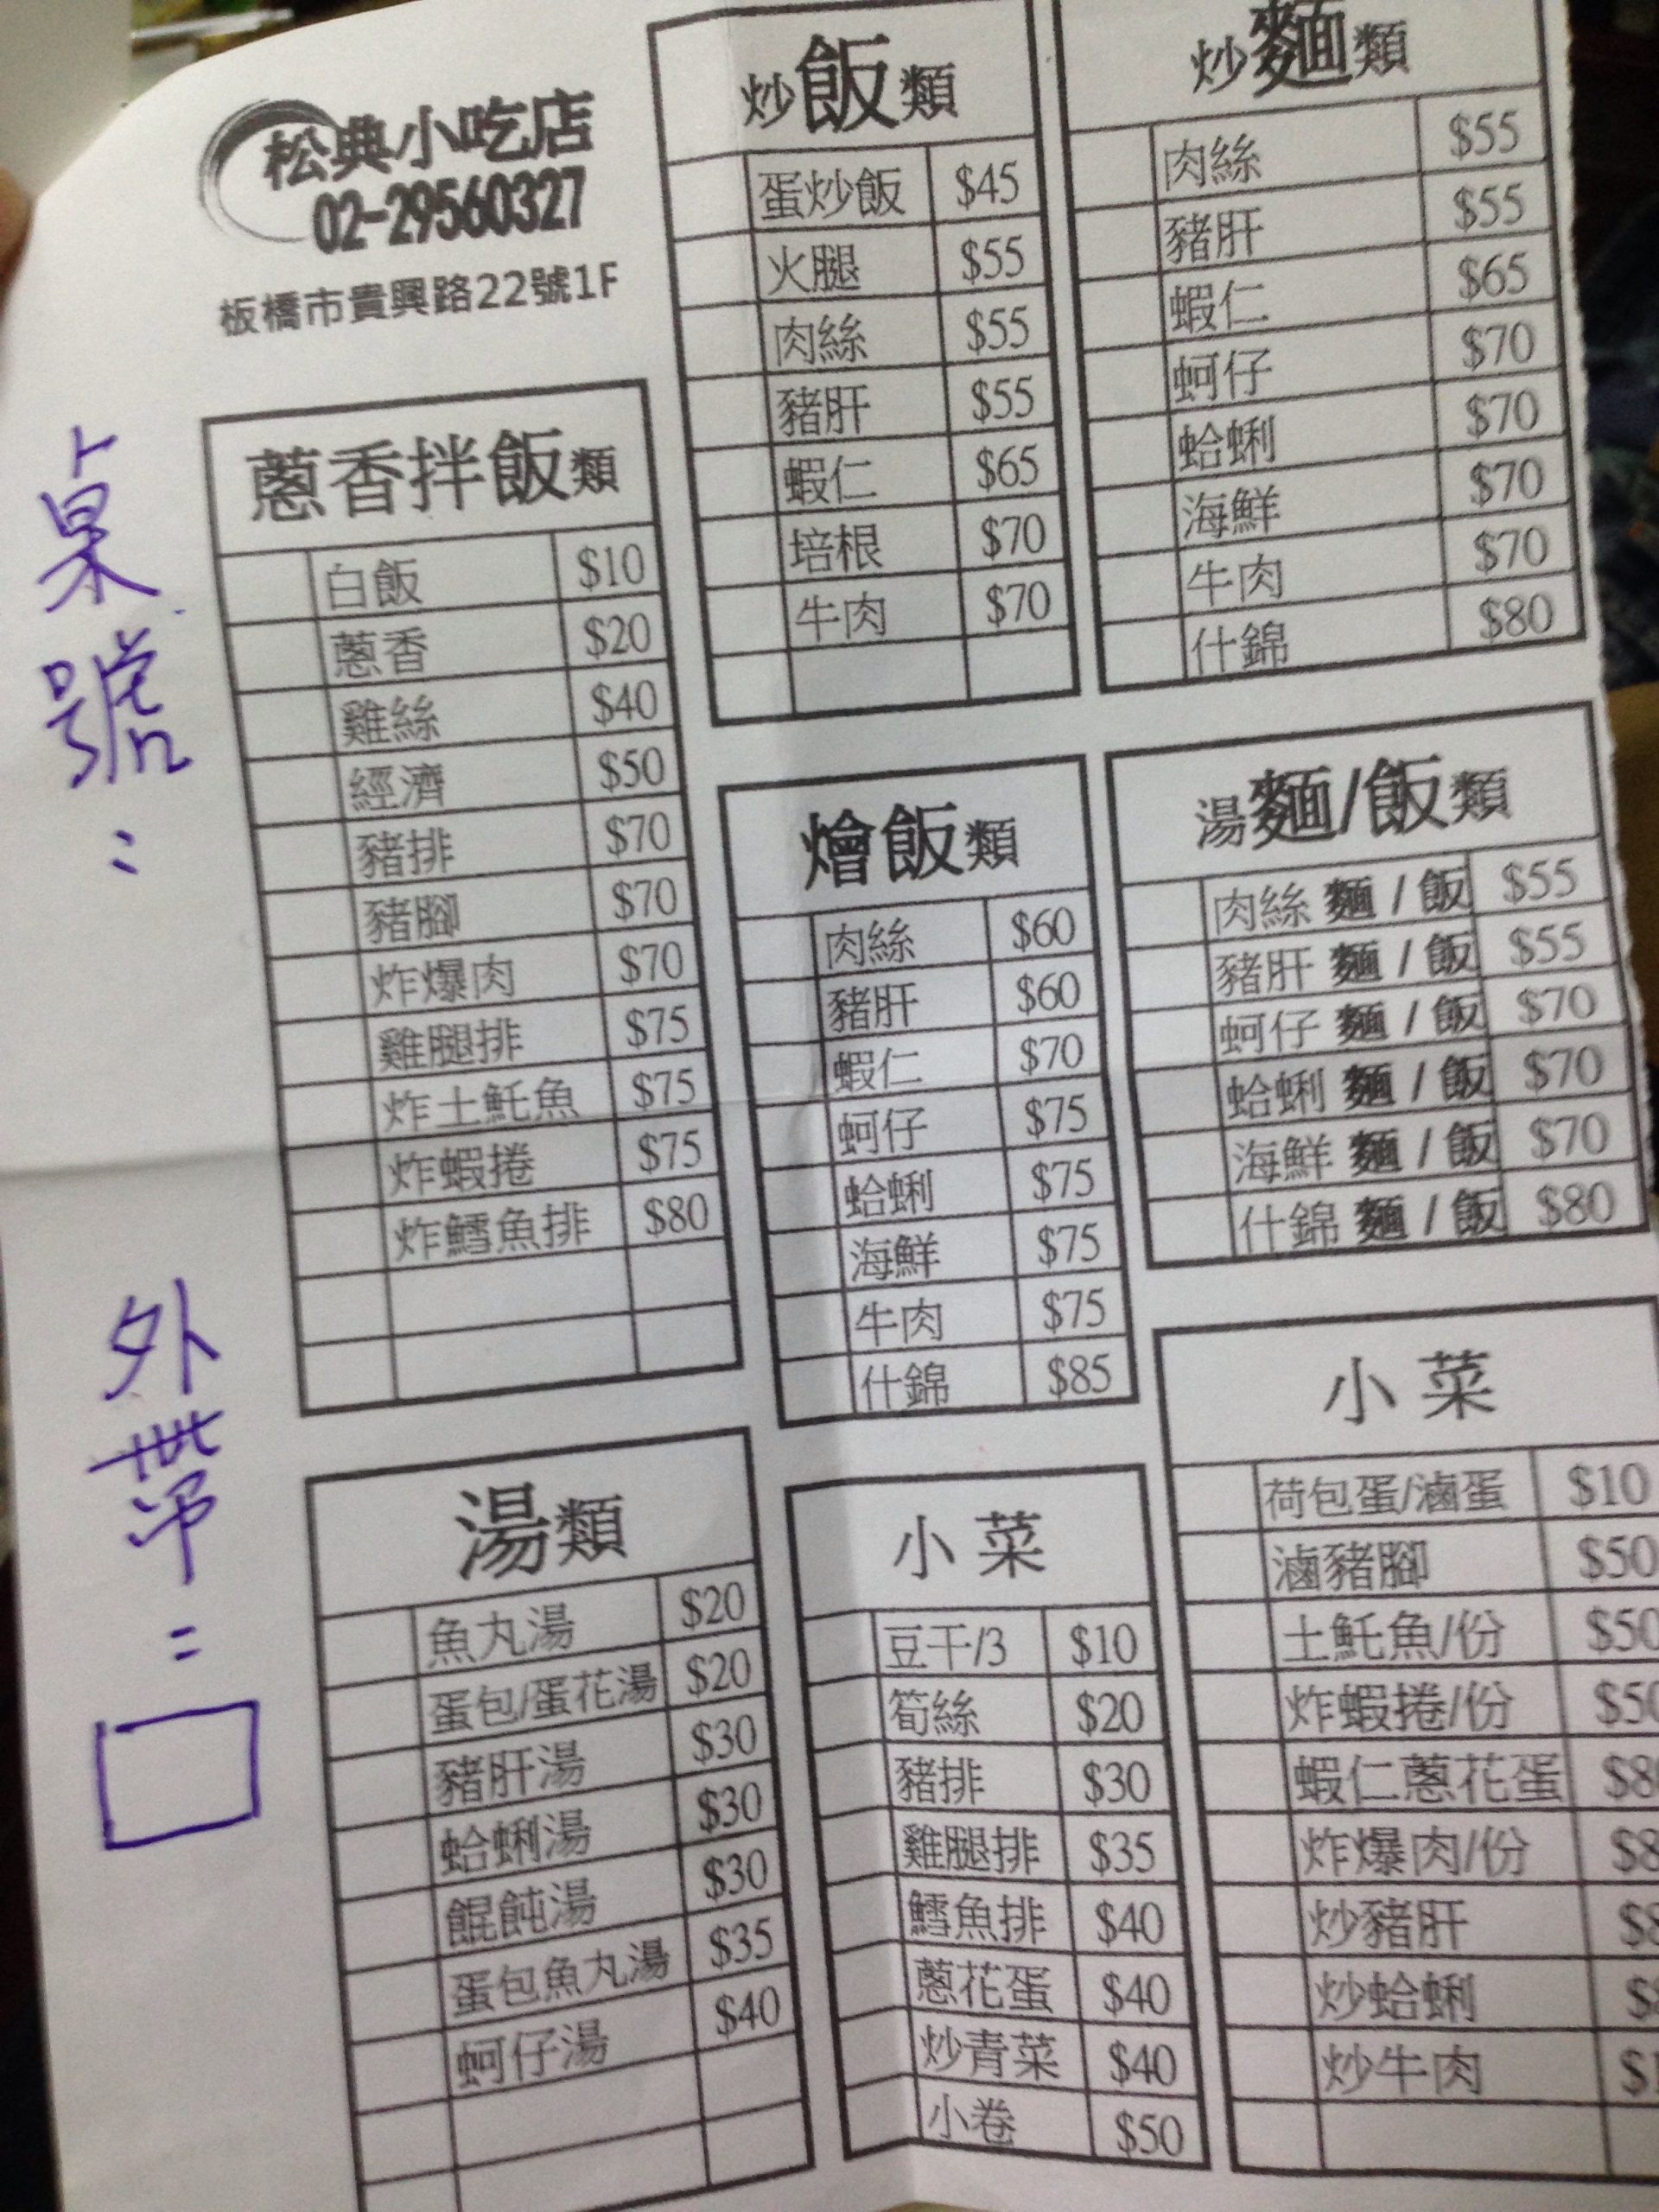 松典小吃店
02-29560327
板橋市貴興路22號1F
桌號：
外帶：
蔥香拌飯類
白飯 $10
蔥香 $20
雞絲 $40
經濟 $50
豬排 $70
豬腳 $70
炸爆肉 $70
雞腿排 $75
炸土魠魚 $75
炸蝦捲 $75
炸鱈魚排 $80
湯類
魚丸湯 $20
蛋包/蛋花湯 $20
豬肝湯 $30
蛤蜊湯 $30
餛飩湯 $30
蛋包魚丸湯 $35
蚵仔湯 $40
炒飯類
蛋炒飯 $45
火腿 $55
肉絲 $55
豬肝 $55
蝦仁 $65
培根 $70
牛肉 $70
燴飯類
肉絲 $60
豬肝 $60
蝦仁 $70
蚵仔 $75
蛤蜊 $75
海鮮 $75
牛肉 $75
什錦 $85
小菜
豆干/3 $10
筍絲 $20
豬排 $30
雞腿排 $35
鱈魚排 $40
蔥花蛋 $40
炒青菜 $40
小卷 $50
炒麵類
肉絲 $55
豬肝 $55
蝦仁 $65
蚵仔 $70
蛤蜊 $70
海鮮 $70
牛肉 $70
什錦 $80
湯麵/飯類
肉絲 麵/飯 $55
豬肝 麵/飯 $55
蚵仔 麵/飯 $70
蛤蜊 麵/飯 $70
海鮮 麵/飯 $70
什錦 麵/飯 $80
小菜
荷包蛋/滷蛋 $10
滷豬腳 $50
土魠魚/份 $50
炸蝦捲/份 $50
蝦仁蔥花蛋
炸爆肉/份
炒豬肝
炒蛤蜊
炒牛肉